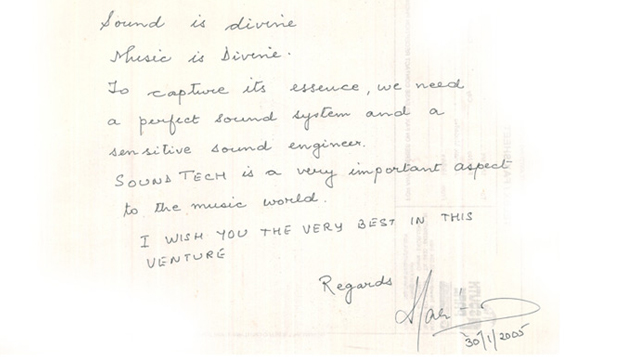 Sound is divine
Music is Divine.
To capture its essence, we need
a perfect sound system and a
sensitive sound engineer.
SOUND TECH is a very important aspect
to the music world.
I WISH YOU THE VERY BEST IN THIS
VENTURE
Regards
30/1/2005